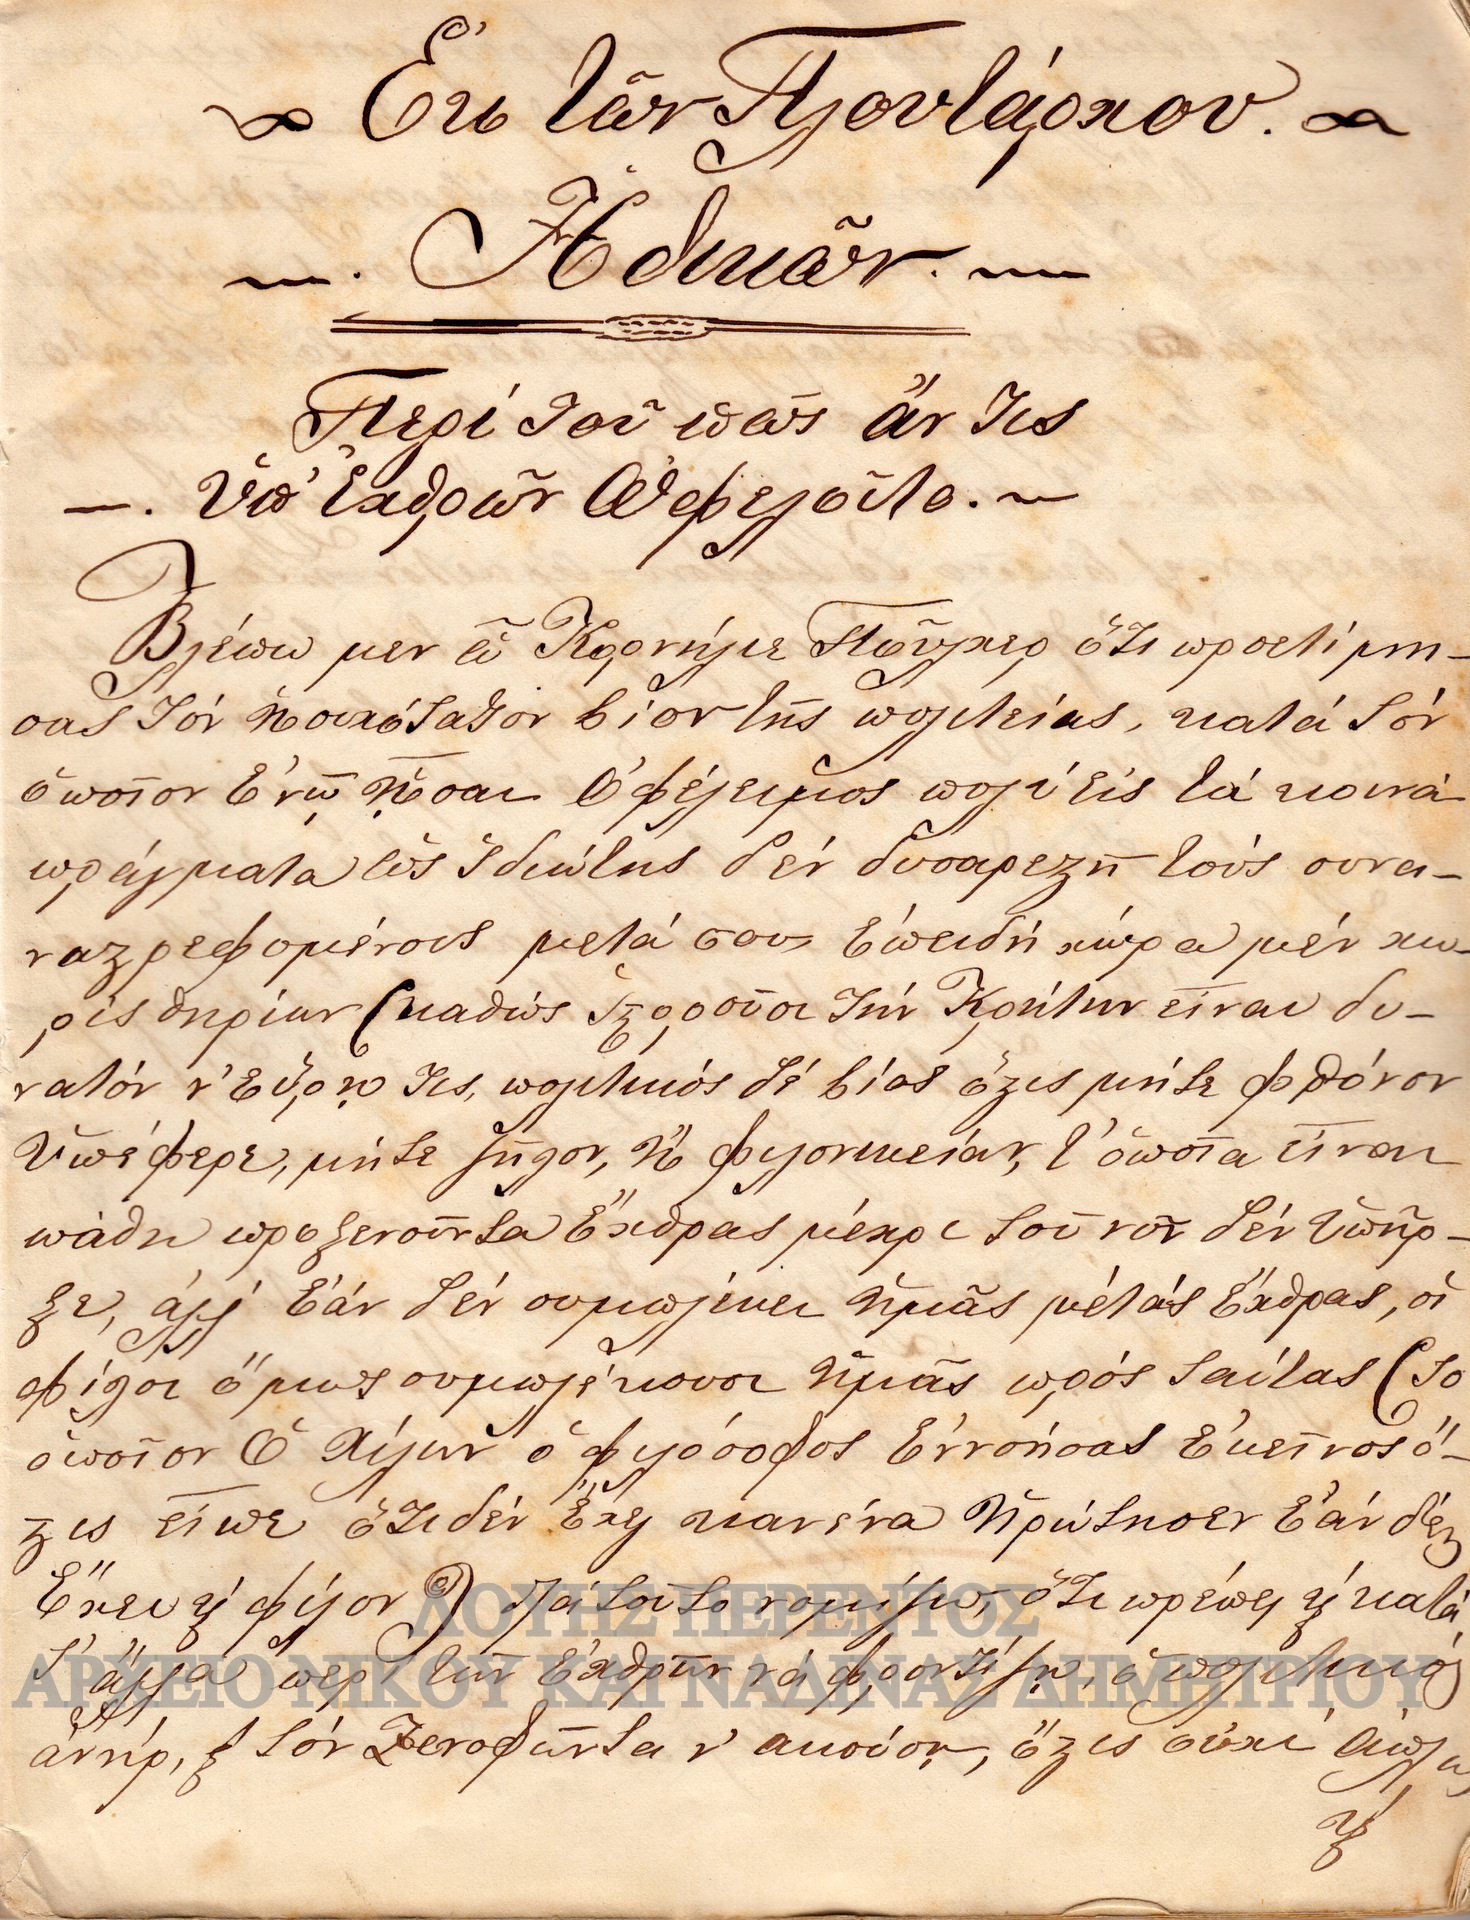 Ἐκ τῶν Πλουτάρχου.
Ἠθικῶν.
Περί τοῦ πῶς ἄν τις
Ὑπ' ἐχθρῶν Ὠφελοῖτο.
Βλέπω μεν ὦ Κορνήλιε Ποῦλχερ ὅτι προετίμη-
σας τόν ἡσυχότατον βίον τῆς πολιτείας, κατά τόν
ὁποῖον ἐνῷ ᾖσαι ὠφέλειμος πολύ εἰς τά κοινά
πράγματα ὡς ἰδιώτης δέν δυσαρεστῇ τούς συνα-
ναστρεφομένους μετά σου· ἐπειδή χώρα μέν χω-
ρίς θηρίων (καθώς ἱστοροῦσι τήν Κρήτην εἶναι δυ-
νατόν ν' εὕρῃ τις, πολιτικός δέ βίος ὅστις μήτε φθόνον
ὑπέφερε, μήτε ζῆλον, ἤ φιλονικείαν, τ' ὁποῖα εἶναι
πάθη προξενοῦντα ἔχθρας μέχρι τοῦ νῦν δέν ὑπῆρ-
ξε, ἀλλ' ἐάν δέν συμπλέκει ἡμᾶς μέ τάς ἔχθρας, οἱ
φίλοι ὅμως συμπλέκουσι ἡμᾶς πρός ταύτας (το
ὁποῖον ὁ Χίλων ὁ φιλόσοφος ἐννοήσας ἐκεῖνος ὅ-
στις εἶπε ὅτι δέν ἔχει κανένα ἠρώτησεν ἐάν δέν
ἔχει καί φίλον) διά τοῦτο νομίζω, ὅτι πρέπει καί κατά
τ' ἄλλα περί τῶν ἐχθρῶν νά φροντίζῃ, ὁ πολιτικός
ἀνήρ, καί τόν Ξενοφῶντα ν' ακούσῃ, ὅστις οὐχί ἁπλῶς
καί
ΛΟΥΗΣ ΠΕΡΕΝΤΟΣ
ΑΡΧΕΙΟ ΝΙΚΟΥ ΚΑΙ ΝΑΔΙΝΑΣ ΔΗΜΗΤΡΙΟΥ